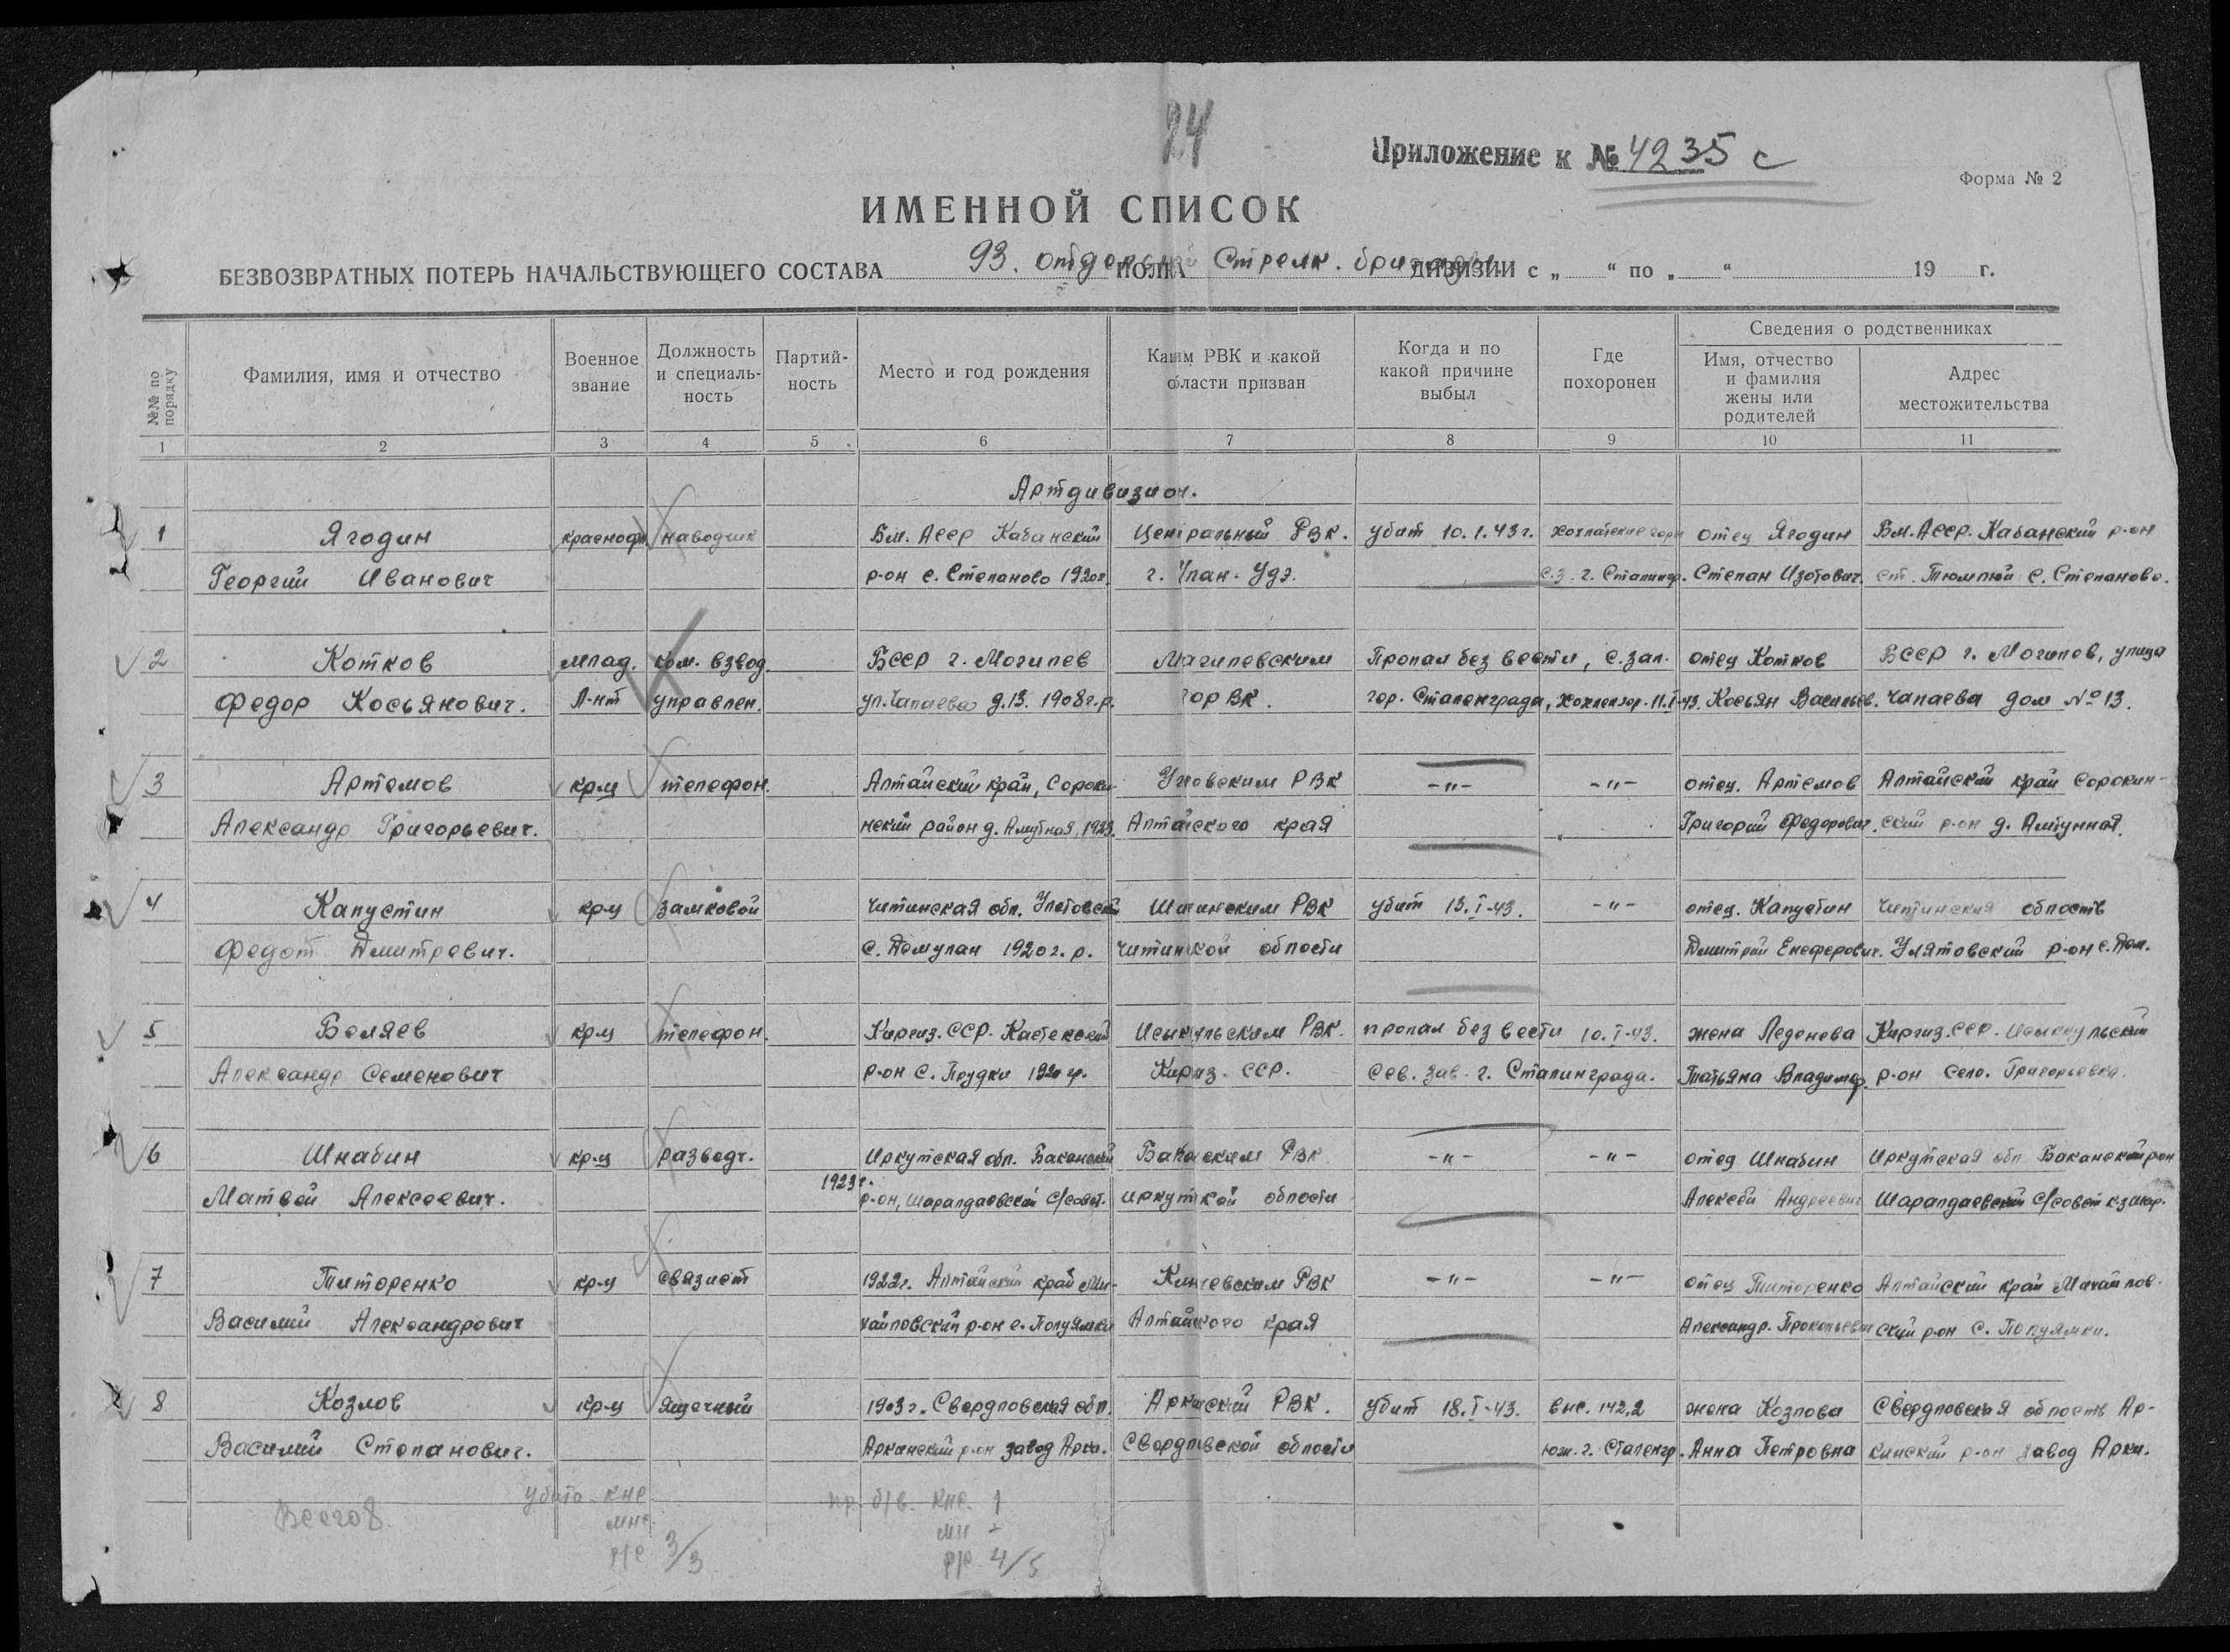 24
Приложение к № 4235 с
Форма № 2
ИМЕННОЙ СПИСОК
БЕЗВОЗВРАТНЫХ ПОТЕРЬ НАЧАЛЬСТВУЮЩЕГО СОСТАВА 93. отдельной ПОЛКА Стрелк. бригады ДИВИЗИИ с „ “ по „ “ 19 г.
№№ по порядку
Фамилия, имя и отчество
Военное звание
Должность и специаль-ность
Партий-ность
Место и год рождения
Каким РВК и какой области призван
Когда и по какой причине выбыл
Где похоронен
Сведения о родственниках
Имя, отчество и фамилия жены или родителей
Адрес местожительства
1 2 3 4 5 6 7 8 9 10 11
Артдивизион.
1 Ягодин красноф. наводчик Бм. Асср Кабанский Центральный РВК. убит 10.1.43г. отец Ягодин Бм. Асср. Кабанский р-он
Георгий Иванович р-он с. Степаново 1920г. г. Улан-Удэ. с.з. г. Сталингр. Степан Изотович. ст. Тимлюй с. Степаново.
2 Котков млад. ком. взвод. Бсср г. Могилев Магилевским Пропал без вести, с. зап. отец Котков Бсср г. Могилев, улица
Федор Косьянович. Л-нт управлен. ул. Чапаева д.13. 1908г.р. гор ВК. гор. Сталенграда, 11.I-43. Косьян Васильев. Чапаева дом № 13.
3 Артемов кр-ц телефон. Алтайский край, Сороки- Угловским РВК -"- -"- отец. Артемов Алтайский край Сорокин-
Александр Григорьевич. нский район д. Амутная, 1923. Алтайского края Григорий Федорович. ский р-он д. Амтунная.
4 Капустин кр-ц замковой Читинская обл. Улетовск. Шитинским РВК убит 13.I-43. -"- отец. Капустин Читинская область
Федот Дмитревич. с. Демулан 1920г.р. Читинской области Дмитрий Енеферович. Улятовский р-он с. Дем.
5 Беляев кр-ц телефон. Киргиз. ССР. Кастекский Исыкульским РВК. пропал без вести 10.I-43. жена Леденева Киргиз. сср. Исыккульский
Александр Семенович р-он с. Прудки Киргиз. ССР. Сев. зап. г. Сталинграда. Татьяна Владимир. р-он село. Григорьевка.
6 Шнабин кр-ц разведч. Иркутская обл. Баканский Баканским РВК -"- -"- отец Шнабин Иркутская обл Баканский р-он
Матвей Алексеевич. 1923г. р-он, Шаралдаевский с/совет. Иркутской области Алексей Андреевич Шаралдаевский с/совет
7 Титоренко кр-ц связист 1922г. Алтайский край Ми- Ключевским РВК -"- -"- отец Титоренко Алтайский край Михайлов-
Василий Александрович хайловский р-он с. Полуямки Алтайского края Александр. Прокопьевич ский р-он с. Полуямки.
8 Козлов кр-ц ящечный 1903г. Свердловская обл. Аркинский РВК. убит 18.I-43. выс. 142,2 жена Козлова Свердловская область Ар-
Василий Степанович. Аркинский р-он завод Арки. Свердловской области юж. г. Сталенгр. Анна Петровна кинский р-он завод Арки.
Всего 8 убито кнс пр. б/в. кнс. 1
мнс мн -
р/с 3/3 р/с. 4/5